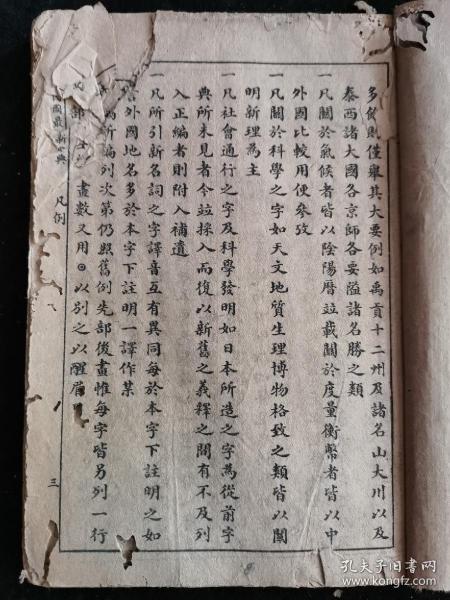 多僅則僅舉其大要例如禹貢十二州及諸名山大川以及
泰西諸大國各京師各要隘諸名勝之類
一凡關於氣候者皆以陰陽曆竝載關於度量衡幣者皆以中
外國比較用便參攷
一凡關於科學之字如天文地質生理博物格致之類皆以闡
明新理為主
一凡社會通行之字及科學發明如日本所造之字為從前字
典所未見者今竝採入而復以新舊之義釋之間有不及列
入正編者則附入補遺
一凡所引新名詞之字譯音互有異同每於本字下註明之如
外國地名多於本字下註明一譯作某
為新編列次第仍照舊例先部後畫惟每字皆另列一行
部 畫數又用⊙以別之以醒眉
國最新 典
凡例
三
孔夫子旧书网
www.kongfz.com